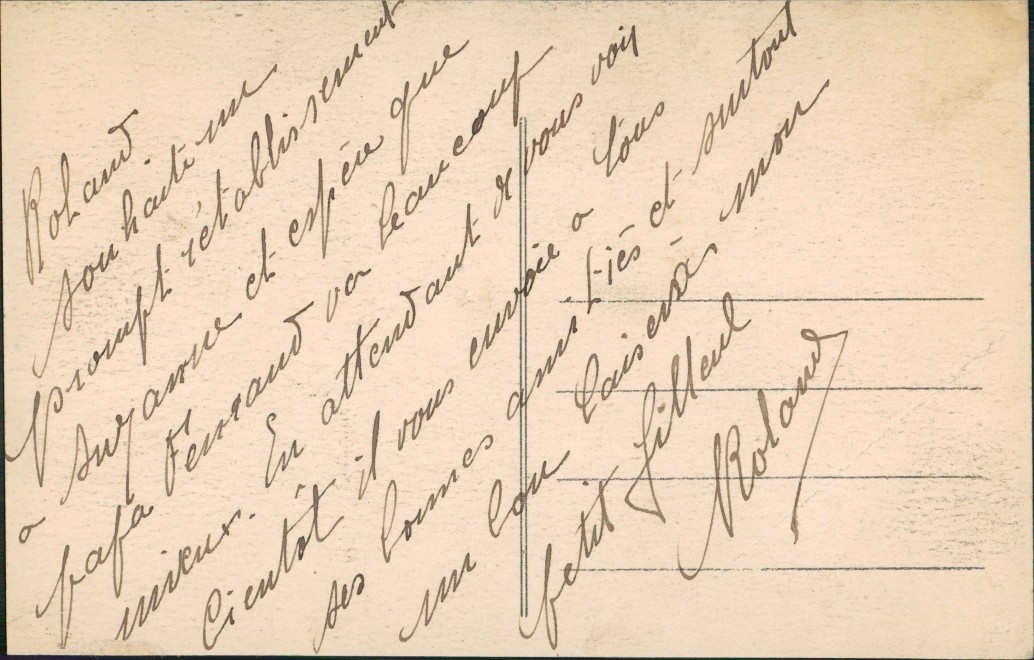 Roland
souhaite un
prompt rétablissement
a Suzanne et espère que
papa Fernand va beaucoup
mieux. En attendant de vous voir
bientôt il vous envoie a tous
ses bonnes amitiés et surtout
un bon baisers mon
petit filleul
Roland